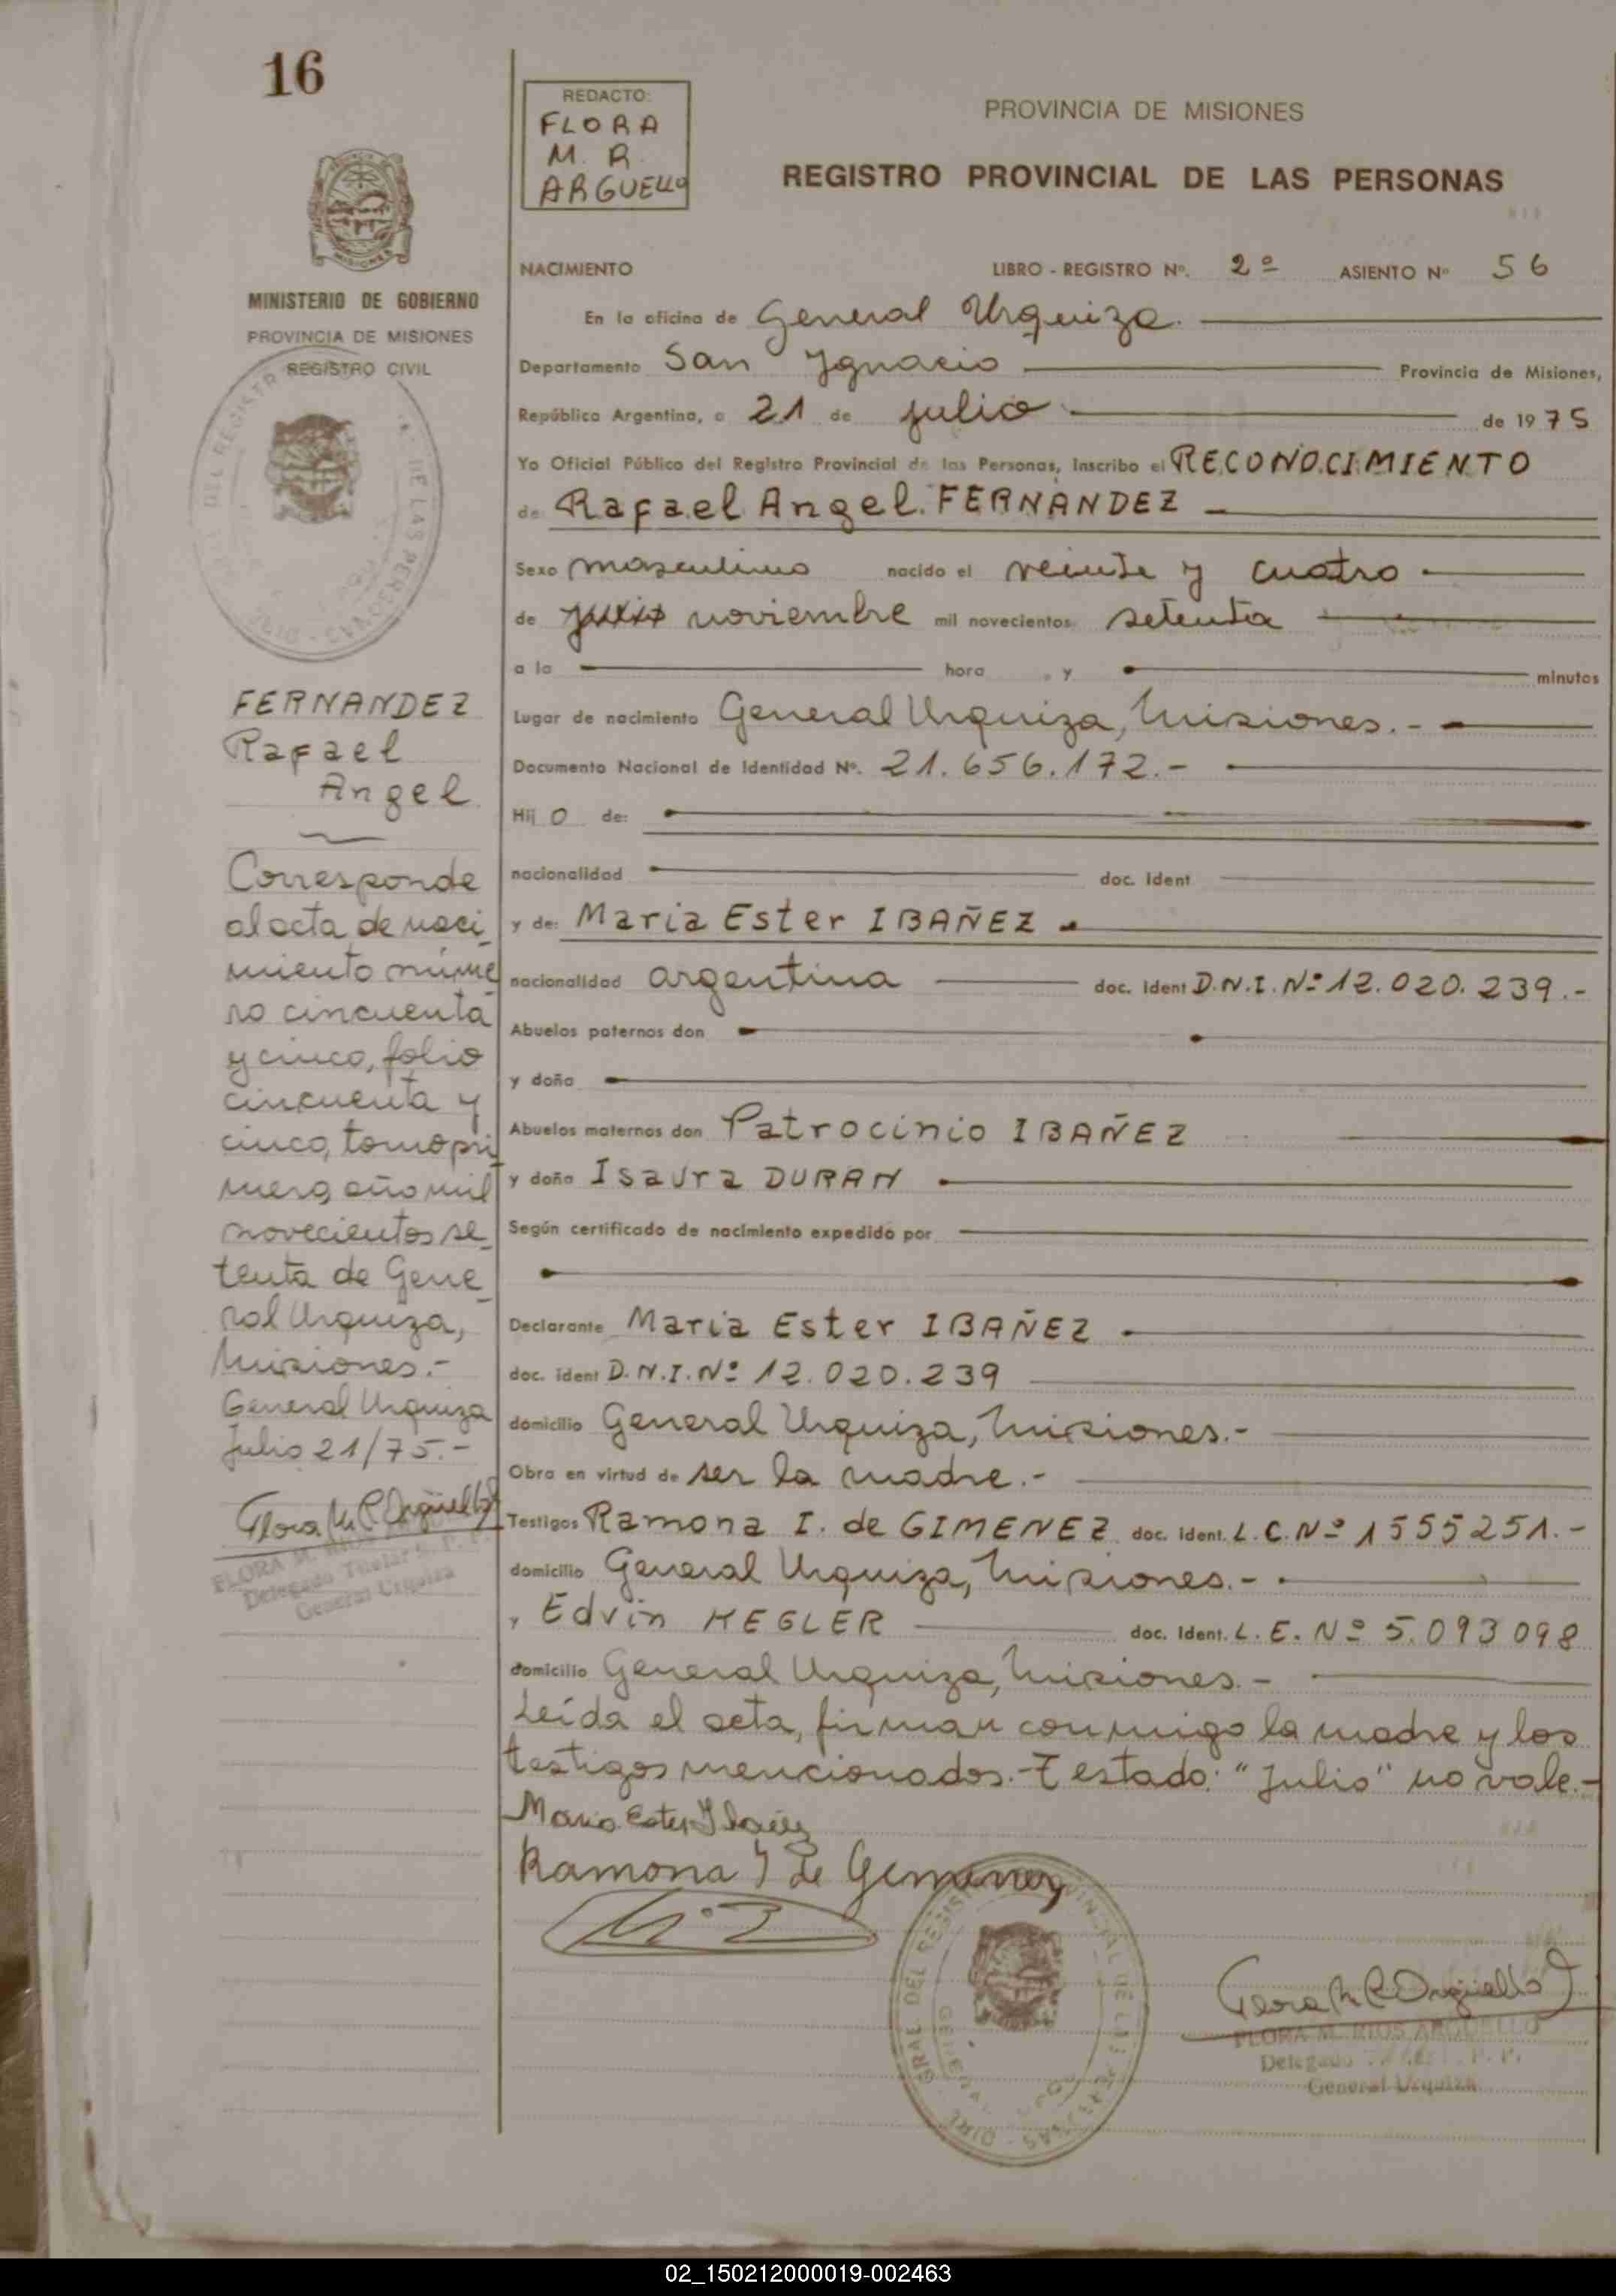 16
REDACTO:
FLORA
M. R.
ARGUELLO
PROVINCIA DE MISIONES
REGISTRO PROVINCIAL DE LAS PERSONAS
MISIONES
MINISTERIO DE GOBIERNO
PROVINCIA DE MISIONES
REGISTRO CIVIL
NACIMIENTO LIBRO - REGISTRO Nº. 2º ASIENTO Nº 56
En la oficina de General Urquiza.
Departamento San Ygnacio Provincia de Misiones,
República Argentina, a 21 de julio de 1975
Yo Oficial Público del Registro Provincial de las Personas, Inscribo el RECONOCIMIENTO
de Rafael Angel FERNANDEZ
Sexo masculino nacido el veinte y cuatro
de julio noviembre mil novecientos setenta
a la hora y minutos
Lugar de nacimiento General Urquiza, Misiones.-
Documento Nacional de Identidad Nº. 21.656.172.-
Hijo de:
nacionalidad doc. Ident
y de: Maria Ester IBAÑEZ
nacionalidad argentina doc. Ident D.N.I. Nº 12.020.239.-
Abuelos paternos don
y doña
Abuelos maternos don Patrocinio IBAÑEZ
y doña Isaura DURAN
Según certificado de nacimiento expedido por
Declarante Maria Ester IBAÑEZ
doc. ident D.N.I. Nº 12.020.239
domicilio General Urquiza, Misiones.-
Obra en virtud de ser la madre.-
Testigos Ramona I. de GIMENEZ doc. ident. L.C. Nº 1555251.-
domicilio General Urquiza, Misiones.-
y Edvin KEGLER doc. Ident. L.E. Nº 5.093098
domicilio General Urquiza, Misiones.-
Leída el acta, firman conmigo la madre y los
testigos mencionados.-Testado: "Julio" no vale.-
Maria Ester Ibañez
Ramona I de Gimenez
Flora M R Argüello
FLORA M. RIOS ARGUELLO
Delegado
General Urquiza
FERNANDEZ
Rafael
Angel
Corresponde
al acta de naci
miento núme
ro cincuenta
y cinco, folio
cincuenta y
cinco, tomo pri
mero, año mil
novecientos se
tenta de Gene
ral Urquiza,
Misiones.-
General Urquiza
Julio 21/75.-
Flora M R Argüello
FLORA M. RIOS
Delegado Titular
General Urquiza
02_150212000019-002463